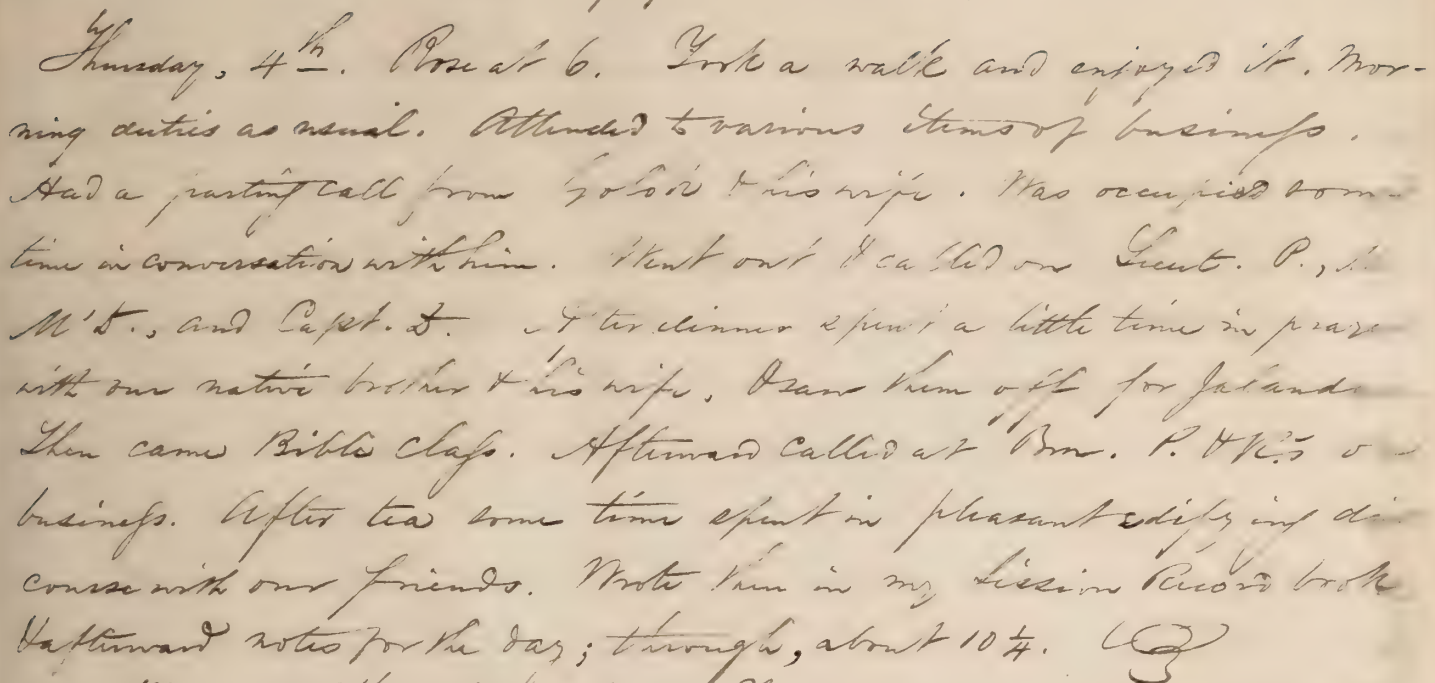 Thursday, 4th. Rose at 6. Took a walk and enjoyed it. Mor-
ning duties as usual. Attended to various items of business.
Had a parting call from Golok & his wife. Was occupied som
time in conversation with him. Went out & called on Lieut. P.,
M'D., and Capt. D. After dinner spent a little time in pray
with our native brother & his wife, & saw them off for Jaland
Then came Bible class. Afterward called at Brn. P. & R.'s o
business. After tea some time spent in pleasant edifying dis
course with our friends. Wrote then in my Session Record book
& afterward notes for the day; through, about 10 1/4.